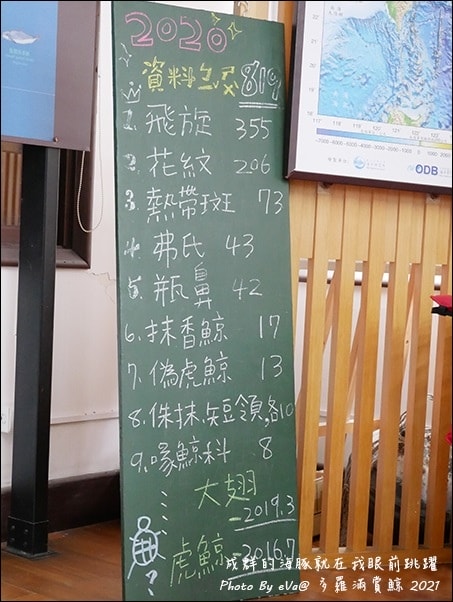 2020
資料ㄅㄆ 819
1. 飛旋 355
2. 花紋 206
3. 熱帶斑 73
4. 弗氏 43
5. 瓶鼻 42
6. 抹香鯨 17
7. 偽虎鯨 13
8. 侏抹、短領,各10
9. 喙鯨科 8
大翅
-2019.3
虎鯨 -2016.7
?
ODB
成群的海豚就在我眼前跳躍
Photo By eVa@ 多羅滿賞鯨 2021